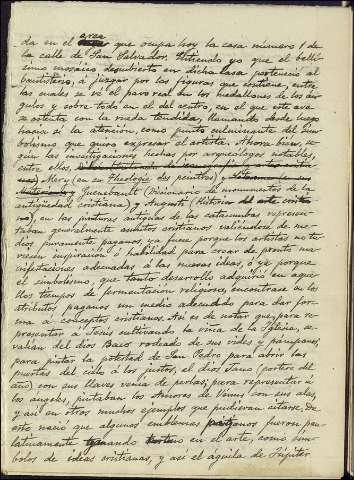 area
da en el que ocupa hoy la casa número 1 de
la calle de San Salvador. Entiendo yo que el bellí-
simo mosaico descubierto en dicha casa perteneció al
baptisterio, á juzgar por las figuras que contiene, entre
las cuales se vé el pavo real en los medallones de los án-
gulos y sobre todo en el del centro, en el que esta ave
se ostenta con la rueda tendida, llamando desde luego
hacia sí la atención, como punto culminante del sim-
bolismo que quiso expresar el artista. Ahora bien, se-
gún las investigaciones hechas por arqueólogos notables,
entre ellos,
Mery (en su Theologie des peintres) y
Guenebault (Diccionario de monumentos de la
antigüedad cristiana) y Augusti (Historia del arte cristia-
no), en las pinturas antiguas de las catacumbas represen-
taban generalmente asuntos cristianos valiéndose de me-
dios puramente paganos, ya fuese porque los artistas no tu-
viesen inspiración ó habilidad para crear de pronto ma-
nifestaciones adecuadas á las nuevas ideas, ó ya porque
el simbolismo, que tanto desarrollo adquirió en aque-
llos tiempos de fermentación religiosa, encontrase en los
atributos paganos un medio adecuado para dar for-
ma á conceptos cristianos. Así es de notar que, para re-
presentar á Jesús cultivando la viña de la Iglesia, se
valían del dios Baco rodeado de sus vides y pámpanos;
para pintar la potestad de San Pedro para abrir las
puertas del cielo á los justos, el dios Jano (portero del
año) con sus llaves venía de perlas; para representar á
los ángeles, pintaban los Amores de Venus con sus alas,
y así en otros muchos ejemplos que pudieran citarse. De
esto nació que algunos emblemas paganos fueron pau-
latinamente tomando en el arte, como sím-
bolos de ideas cristianas, y así el águila de Júpiter